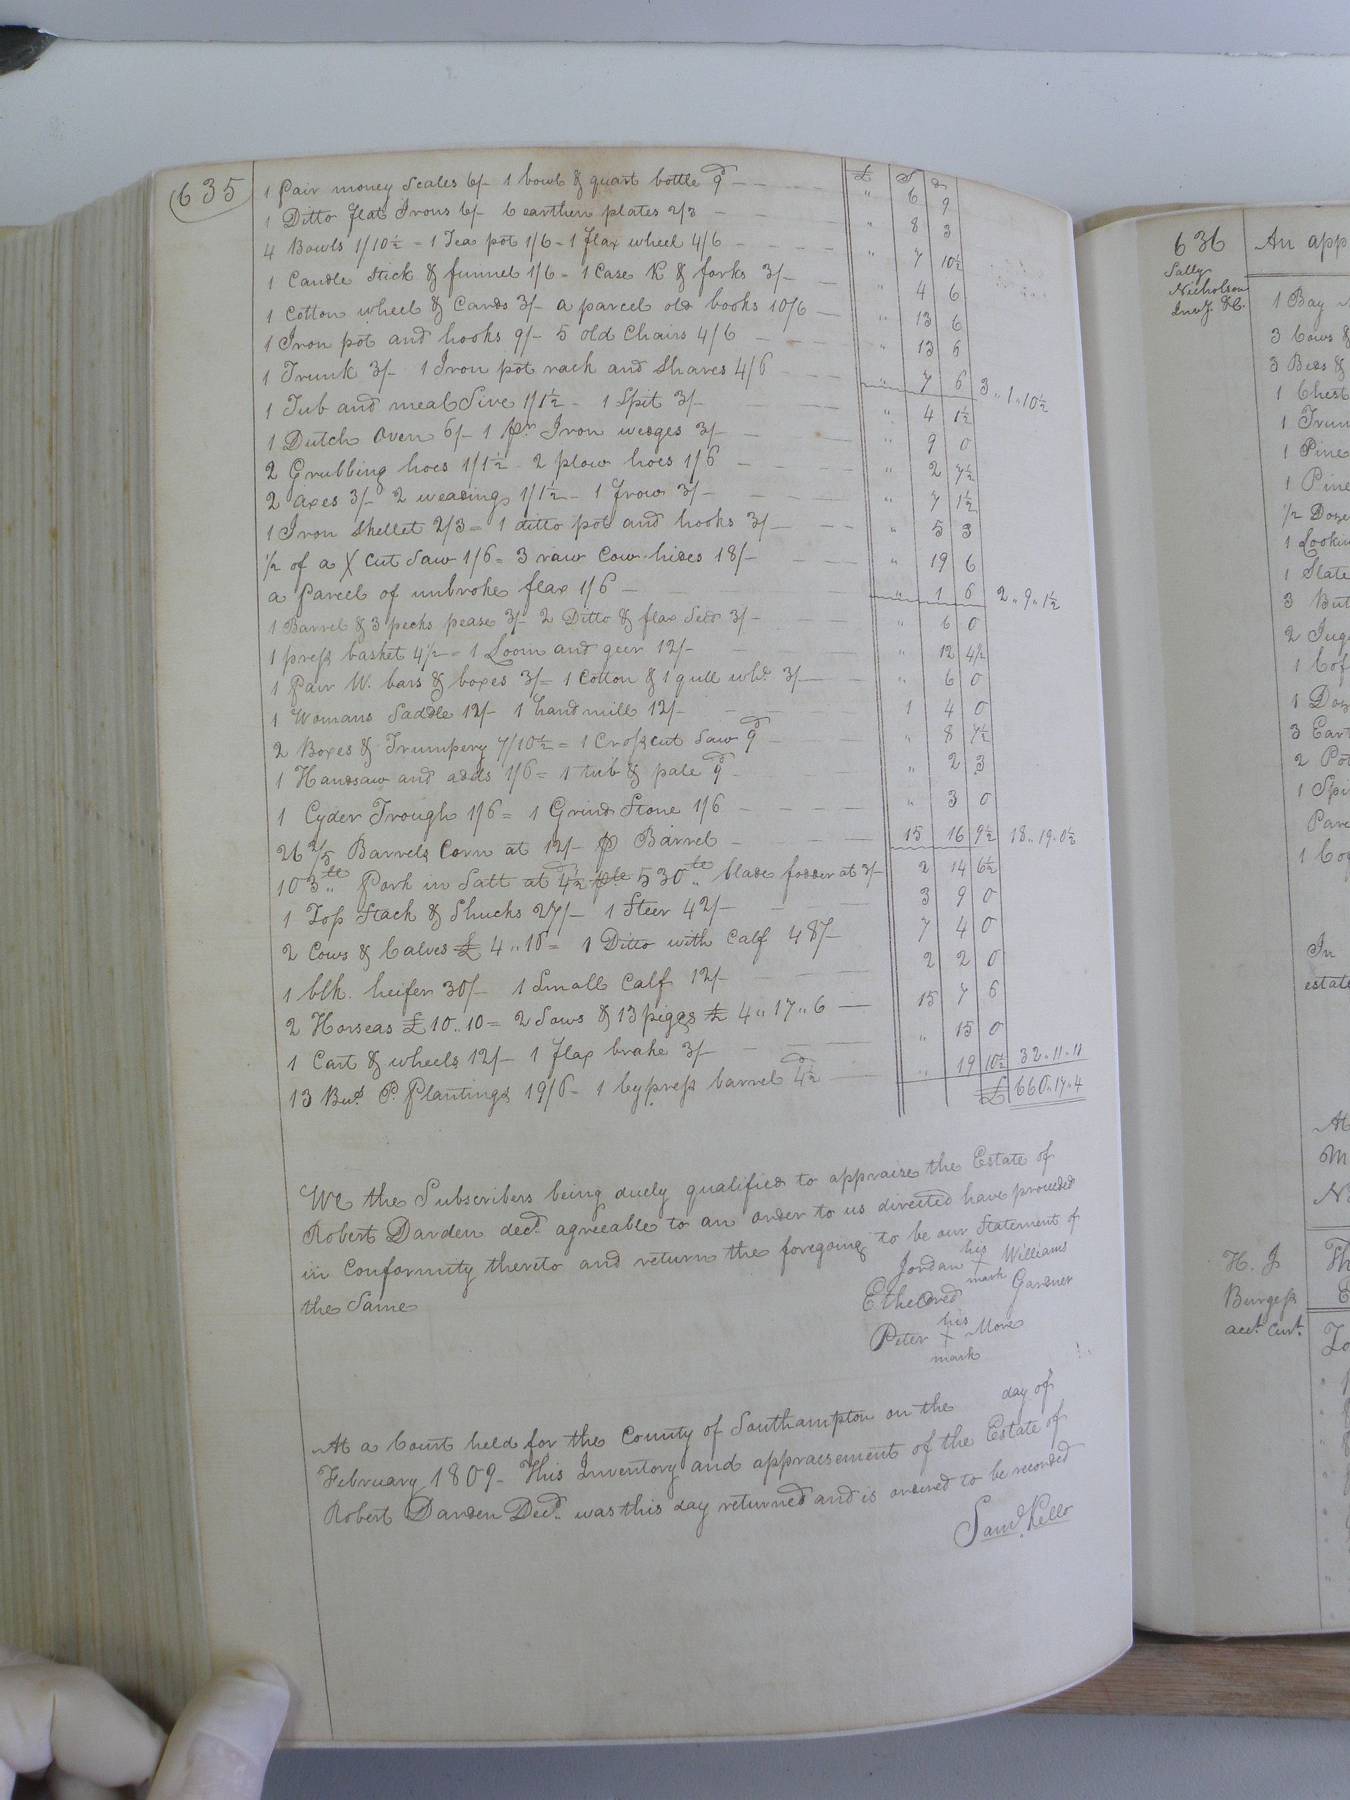 635
£ S d
1 Pair money Scales 6/- 1 bowl & quart bottle 9d " 6 9
1 Ditto flat Irons 6/- 6 earthen plates 2/3 " 8 3
4 Bowls 1/10½ = 1 Tea pot 1/6 - 1 flax wheel 4/6 " 7 10½
1 Candle Stick & funnel 1/6 = 1 Case K & forks 3/- " 4 6
1 Cotton wheel & Cards 3/- a parcel old books 10/6 " 13 6
1 Iron pot and hooks 9/- 5 old Chairs 4/6 " 13 6
1 Trunk 3/- 1 Iron pot rack and Shares 4/6 " 7 6 3 " 1 " 10½
1 Tub and meal Sive 1/1½ - 1 Spit 3/- " 4 1½
1 Dutch Oven 6/- 1 pr Iron wedges 3/- " 9 0
2 Grubbing hoes 1/1½ 2 plow hoes 1/6 " 2 7½
2 axes 3/- 2 weadings 1/1½ - 1 frow 3/- " 7 1½
1 Iron Skellet 2/3 = 1 ditto pot and hooks 3/- " 5 3
½ of a X Cut Saw 1/6 = 3 raw Cow hides 18/- " 19 6
a parcel of unbroke flax 1/6 " 1 6 2 " 9 " 1½
1 Barrel & 3 pecks pease 3/- 2 Ditto & flax Seed 3/- " 6 0
1 press basket 4½ = 1 Loom and geer 12/- " 12 4½
1 Pair W. bars & boxes 3/- = 1 Cotton & 1 qull whl 3/- " 6 0
1 Womans Saddle 12/- 1 handmill 12/- 1 4 0
2 Boxes & Trumpery 7/10½ = 1 Crosscut Saw 9d " 8 7½
1 Handsaw and adds 1/6 = 1 tub & pale 9d " 2 3
1 Cyder Trough 1/6 = 1 Grind Stone 1/6 " 3 0
26 2/5 Barrels Corn at 12/- p Barrel 15 16 9½ 18 " 19 " 0½
103 lb Pork in Salt at 4½d plb 530 lb blade fodder at 3/- 2 14 6½
1 Top Stack & Shucks 27/- 1 Steer 42/- 3 9 0
2 Cows & Calves £ 4 " 16 = 1 Ditto with Calf 48/- 7 4 0
1 blk. heifer 30/- 1 Small Calf 12/- 2 2 0
2 Horseas £ 10 " 10 = 2 Sows & 13 piggs £ 4 " 17 " 6 15 7 6
1 Cart & wheels 12/- 1 flax brake 3/- " 15 0
13 Bus. P. Plantings 19/6 - 1 Cypress barrel 4½d " 19 10½ 32 " 11 " 11
£ 660 " 17 " 4
We the Subscribers being duely qualified to appraise the Estate of
Robert Darden decd. agreeable to an order to us directed have proceeded
in Conformity thereto and return the foregoing to be our Statement of
the Same
Jordan his X mark Williams
Etheldred Gardner
Peter his X mark More
At a Court held for the County of Southampton on the day of
February 1809 - This Inventory and appraisement of the Estate of
Robert Darden Decd. was this day returned and is ordered to be recorded
Saml. Kello
636
Sally
Nicholson
Invy. &C.
An app
1 Bay
3 Cows &
3 Beds &
1 Chest
1 Trun
1 Pine
1 Pine
1/2 Doze
1 Lookin
1 Slate
3 But
2 Jugs
1 Cof
1 Doz
3 Eart
2 Pot
1 Spi
Parc
1 Cog
In
estate
At
M
N
H. J
Burgess
acct. Curt.
Th
E
To